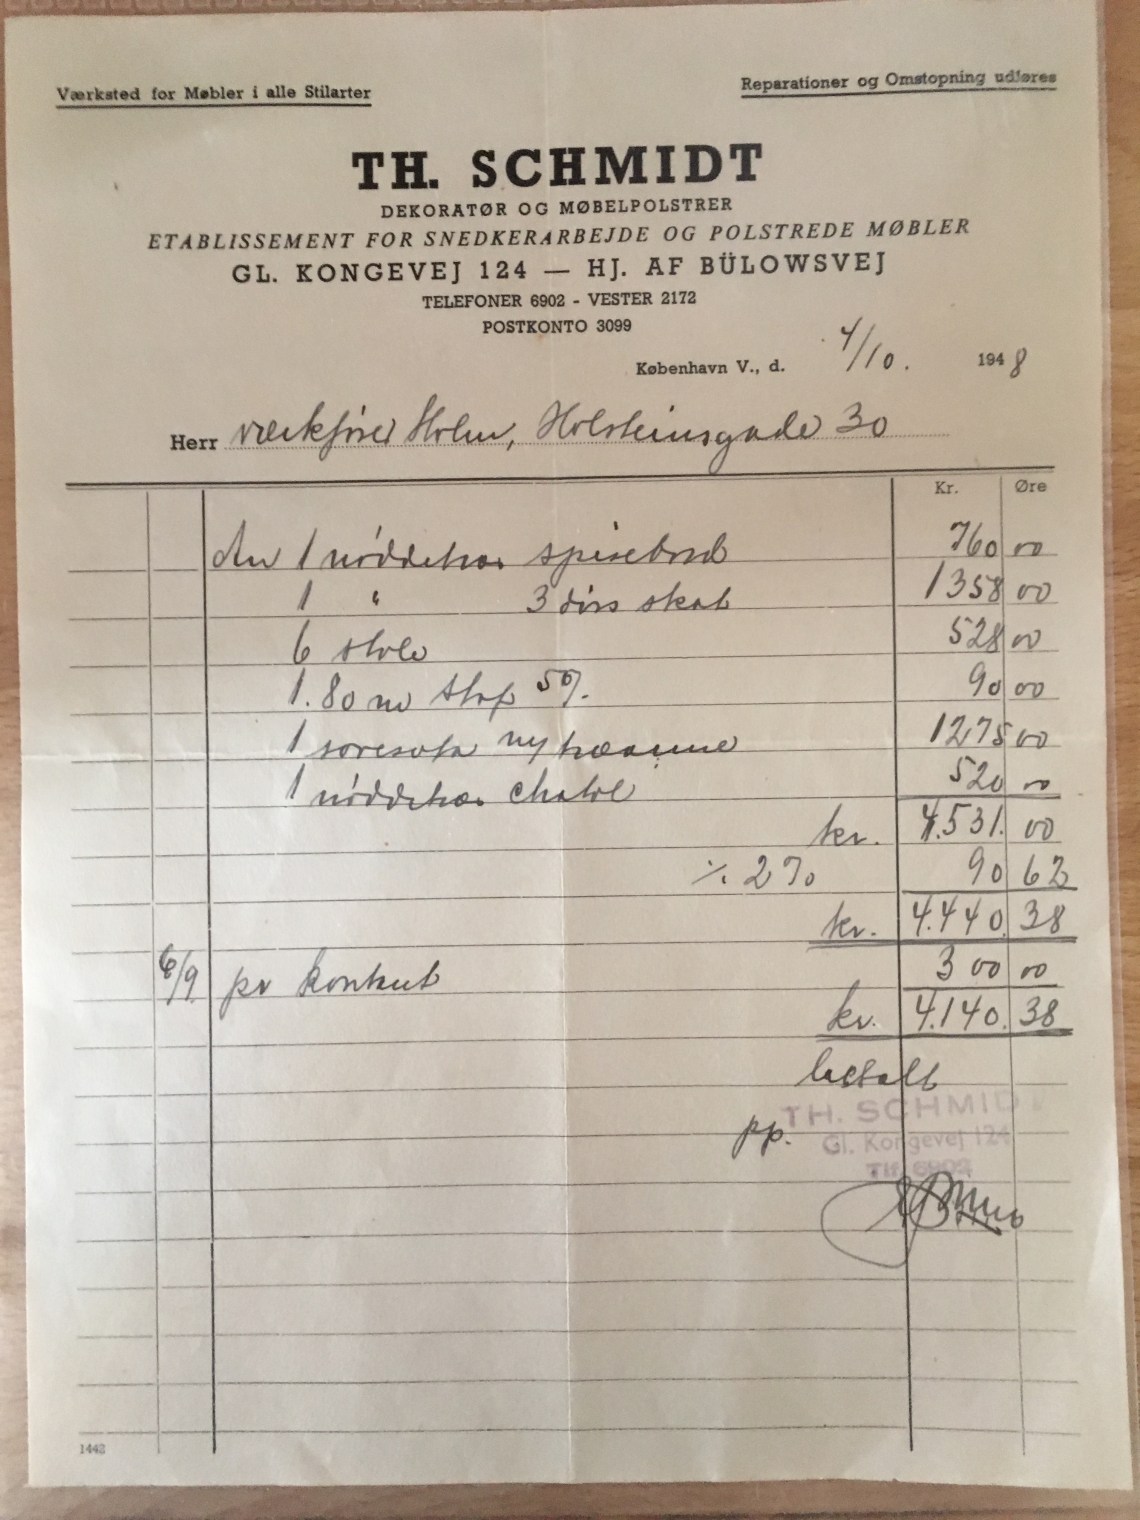 Værksted for Møbler i alle Stilarter
Reparationer og Omstopning udføres
TH. SCHMIDT
DEKORATØR OG MØBELPOLSTRER
ETABLISSEMENT FOR SNEDKERARBEJDE OG POLSTREDE MØBLER
GL. KONGEVEJ 124 — HJ. AF BÜLOWSVEJ
TELEFONER 6902 - VESTER 2172
POSTKONTO 3099
København V., d. 4/10. 1948
Herr værkfører Holm, Holsteinsgade 30
Kr. Øre
1 nøddetræs spisebord 760 00
1 " 3 dørs skab 1358 00
6 stole 528 00
1.80 m stof 50/. 90 00
1 sovesofa ny 1275 00
1 nøddetræs chatol 520 00
kr. 4.531. 00
÷ 2% 90 62
kr. 4.440. 38
6/9 pr kontant 300 00
kr. 4.140. 38
betalt
pp. TH. SCHMIDT
Gl. Kongevej 124
Tlf. 6902
1442